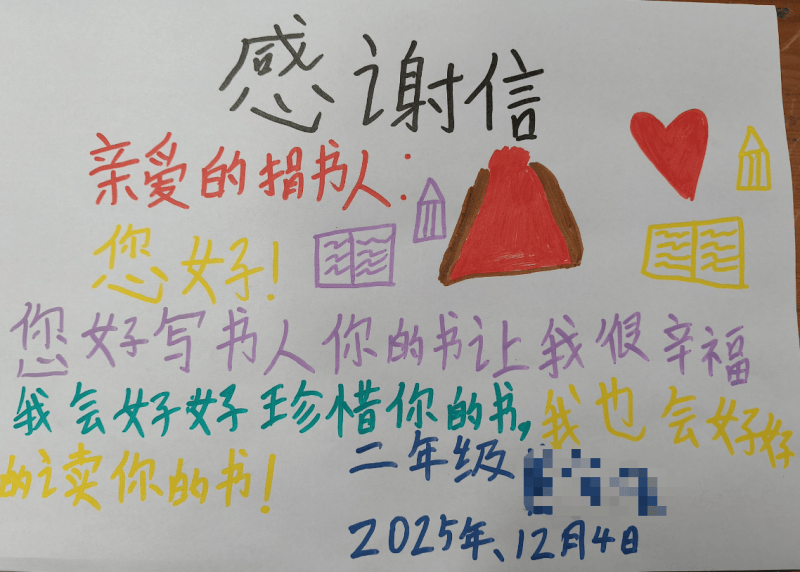 感谢信
亲爱的捐书人：
您好！
您好写书人你的书让我很辛福
我会好好珍惜你的书，我也会好好
的读你的书！
二年级
2025年、12月4日